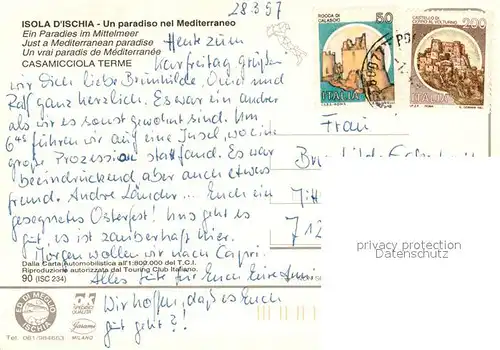 28.3.97
ISOLA D'ISCHIA - Un paradiso nel Mediterraneo
Ein Paradies im Mittelmeer
Just a Mediterranean paradise
Un vrai paradis de Méditerranée
CASAMICCIOLA TERME
Heute zum
Karfreitag grüßen
wir Dich liebe Brunhilde, und
Ralf ganz herzlich. Es war ein andrer
als wir es sonst gewohnt sind. Um
6 45 führen wir auf eine Insel, wo eine
große Prozession stattfand. Es war
beeindruckend aber auch etwas
fremd. Andre Länder ... Euch ein
gesegnetes Osterfest! Uns geht es
gut, es ist zauberhaft hier.
Morgen wollen wir nach Capri.
Alles Gute für Euch Eure
Wir hoffen, daß es Euch
gut geht?!
ROCCA DI
CALASCIO
50
ITALIA
CASTELLO DI
CERRO AL VOLTURNO
200
ITALIA
Frau
712
privacy protection
Dalla Carta Automobilistica all'1:800.000 del T.C.I.
Riproduzione autorizzata dal Touring Club Italiano.
90 (ISC 234)
ED. DI MEGLIO
ISCHIA
MILANO